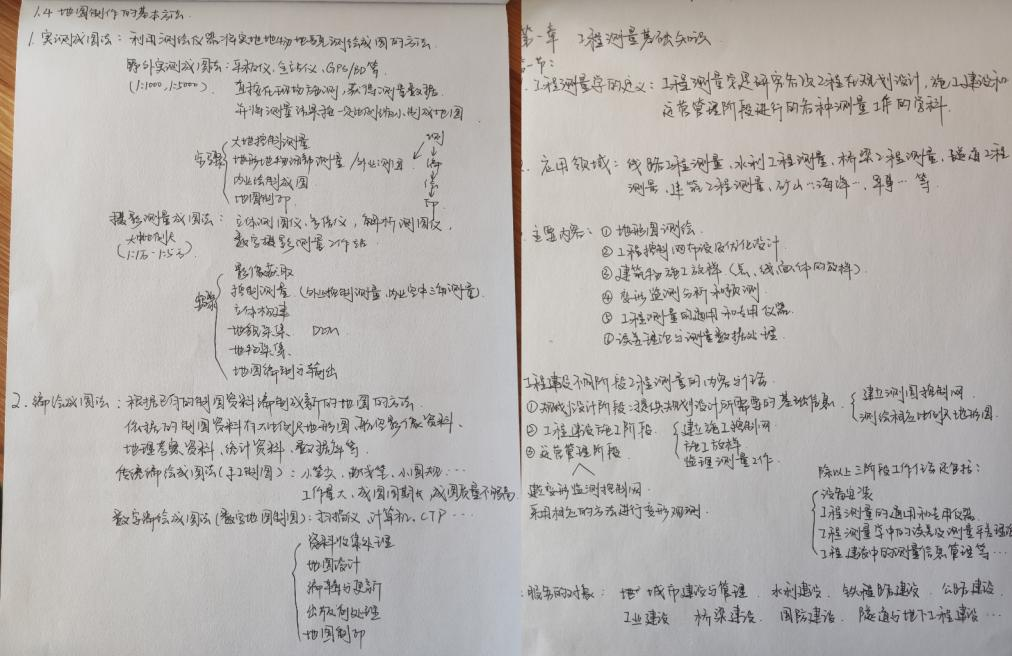 1.4 地图制作的基本方法
1. 实测成图法：利用测绘仪器将实地地物地貌测绘成图的方法
野外实测成图法：平板仪、全站仪、GPS/BD等
(1:1000, 1:5000) 直接在现场施测，获得测量数据
并将测量结果按一定比例缩小，制成地图
步骤
大地控制测量
地形地物碎部测量 / 外业测图
内业绘制成图
地图制印
测
编
绘
印
摄影测量成图法：立体测图仪、多倍仪，解析测图仪，
大比例尺
(1:1万-1:5万) 数字摄影测量工作站
步骤
影像获取
控制测量 (外业控制测量，内业空中三角测量)
立体构建
地貌采集 DEM
地物采集
地图编制与输出
2. 编绘成图法：根据已有的制图资料编制成新的地图的方法
依据的制图资料有大比例尺地形图、航空影像资料、
地理考察资料，统计资料，数据库等
传统编绘成图法(手工制图)：小笔尖，曲线笔，小圆规…
工作量大，成图周期长，成图质量不够高
数字编绘成图法(数字地图制图)：扫描仪，计算机，CTP…
资料收集处理
地图设计
编辑与更新
出版前处理
地图制印
第一章 工程测量基础知识
一节：
工程测量学的定义：工程测量学是研究各项工程在规划设计，施工建设和
运营管理阶段进行的各种测量工作的学科
应用领域：线路工程测量，水利工程测量，桥梁工程测量，隧道工程
测量，建筑工程测量，矿山…海洋…，军事…等
主要内容：① 地形图测绘
② 工程控制网布设及优化设计
③ 建筑物施工放样(点、线、面、体的放样)
④ 变形监测分析和预测
⑤ 工程测量的通用和专用仪器
⑥ 误差理论与测量数据处理
工程建设不同阶段工程测量的内容与任务
① 规划设计阶段：提供规划设计所需要的基础信息
建立测图控制网
测绘相应比例尺地形图
② 工程建设施工阶段
建立施工控制网
施工放样
监理测量工作
③ 运营管理阶段
建变形监测控制网
采用相应的方法进行变形观测
除以上三阶段工作任务还包括：
设备安装
工程测量的通用和专用仪器
工程测量学中的误差及测量平差理论
工程建设中的测量信息管理等…
服务的对象： 城市建设与管理 水利建设 铁路建设 公路建设
工业建设 桥梁建设 国防建设 隧道与地下工程建设…